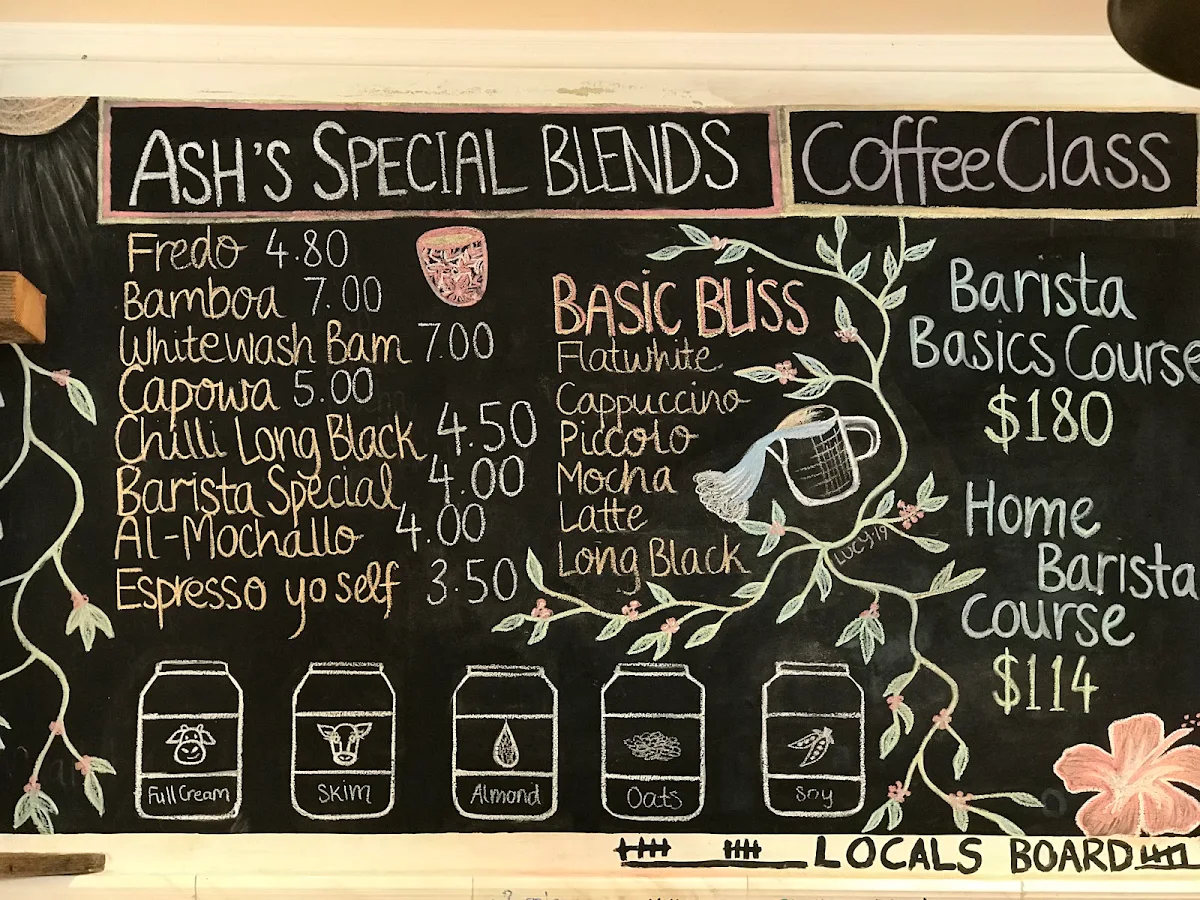 ASH'S SPECIAL BLENDS
Fredo 4.80
Bamboa 7.00
Whitewash Bam 7.00
Capowa 5.00
Chilli Long Black 4.50
Barista Special 4.00
Al-Mochallo 4.00
Espresso yo self 3.50
BASIC BLISS
Flatwhite
Cappuccino
Piccolo
Mocha
Latte
Long Black
LUCY.19
Coffee Class
Barista
Basics Course
$180
Home
Barista
Course
$114
Full Cream
Skim
Almond
Oats
Soy
LOCALS BOARD